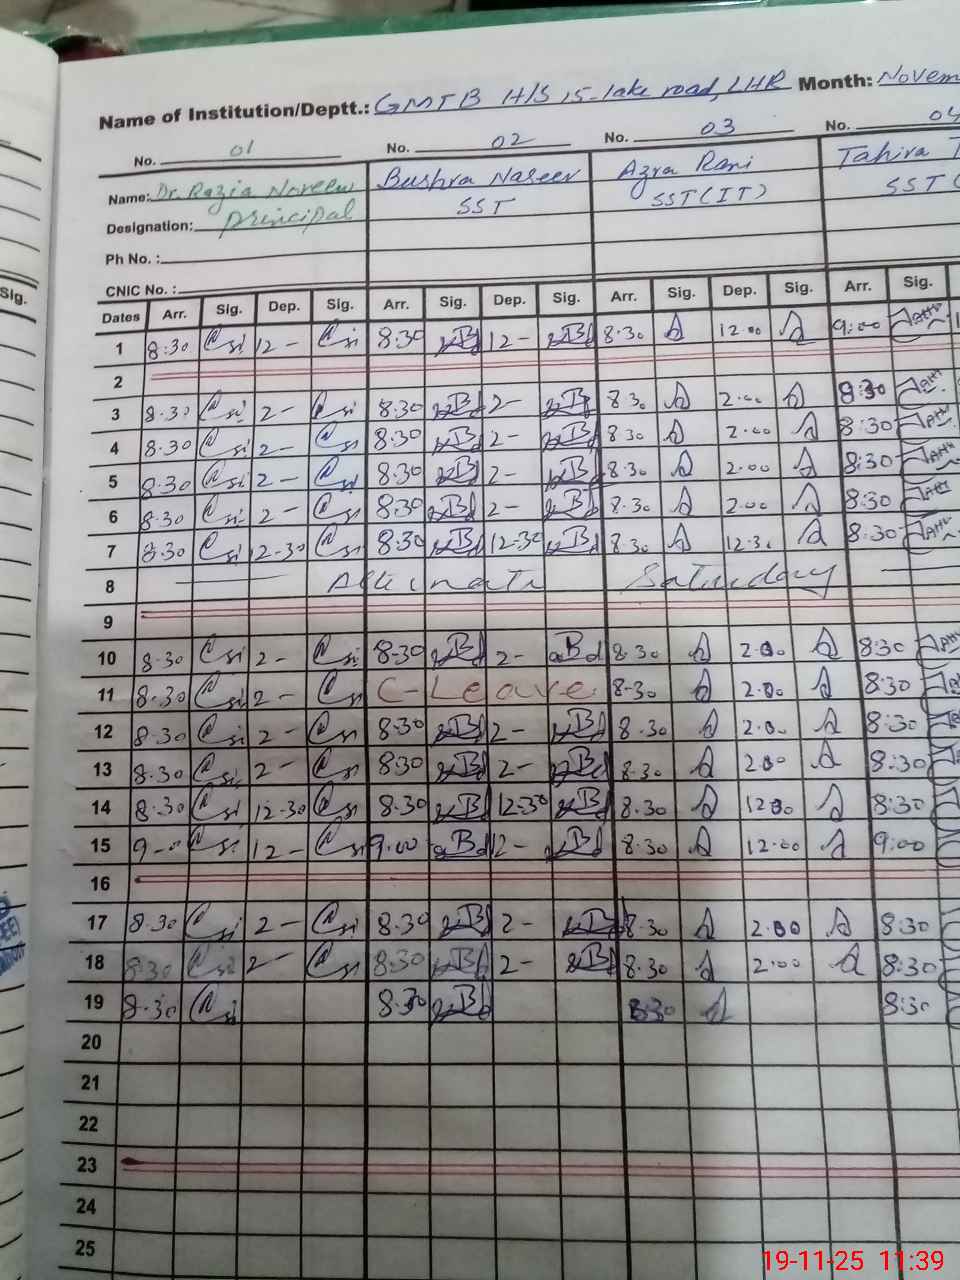 Name of Institution/Deptt.: GMTB H/S, 15-lake road, LHR Month: Novem
No. 01 No. 02 No. 03 No. 04
Name: Dr. Razia Noreen Bushra Naseer Azra Rani Tahira
Designation: Principal SST SST(IT) SST(
Ph No. :
CNIC No. :
Sig.
Dates Arr. Sig. Dep. Sig. Arr. Sig. Dep. Sig. Arr. Sig. Dep. Sig. Arr. Sig.
1 8:30 12- 8:30 12- 8:30 12.00 9:00
2
3 8.30 2- 8:30 2- 8 30 2.00 8:30
4 8.30 2- 8:30 2- 8 30 2.00 8:30
5 8.30 2- 8:30 2- 8.30 2.00 8:30
6 8.30 2- 8:30 2- 8.30 2.00 8:30
7 8.30 12-30 8:30 12-30 8.30 12.30 8:30
8 Alternate Saturday
9
10 8.30 2- 8:30 2- 8.30 2.00 8:30
11 8.30 2- C-Leave 8.30 2.00 8:30
12 8.30 2- 8:30 2- 8.30 2.00 8:30
13 8.30 2- 8:30 2- 8.30 2.00 8:30
14 8.30 12-30 8.30 12-30 8.30 12.30 8:30
15 9-00 12- 9.00 12- 8.30 12.00 9:00
16
17 8.30 2- 8.30 2- 8.30 2.00 8:30
18 8.30 2- 8:30 2- 8.30 2.00 8:30
19 8.30 8:30 8.30 8:30
20
21
22
23
24
25
19-11-25 11:39